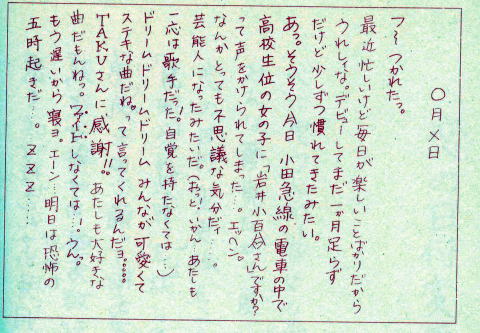 〇月×日
フ〜つかれたっ。
最近忙しいけど毎日が楽しいことばかりだから
うれしィな。デビューしてまだ一ヵ月足らず
だけど少しずつ慣れてきたみたい。
あっ。そうそう今日 小田急線の電車の中で
高校生位の女の子に「岩井小百合さんですか?」
って声をかけられてしまった…。エッヘン。
なんかとっても不思議な気分だィ…。
芸能人になったみたいだ。(おっと、いかん あたしも
一応は歌手だった!自覚を持たなくては…)
ドリームドリームドリーム みんなが可愛くて
ステキな曲だね。って言ってくれるんだョ。。。。。
TAKUさんに感謝!!。あたしも大好きな
曲だもんねっ。ファイトしなくては…!。うんっ。
もう遅いから寝ョ。エーン…明日は恐怖の
五時起きだ…。ZZZ……